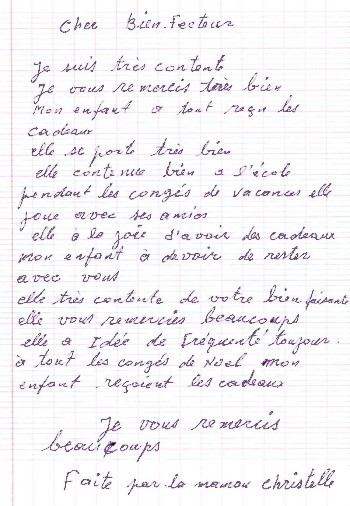 Cher Bien.Fecteur
Je suis très contente
Je vous remercis très bien
Mon enfant a tout reçu les
cadeaux
elle se porte très bien
elle contenue bien a l'école
pendant les congés de vacances elle
joue avec ses amies
elle à la joie d'avoir des cadeaux
mon enfant à devoir de rester
avec vous
elle très contente de votre bien faisante
elle vous remercies beaucoups
elle a Idée de Fréquenté toujour.
à tout les congés de Noel mon
enfant reçoient les cadeaux
Je vous remercis
beaucoups
Faite par la maman christelle